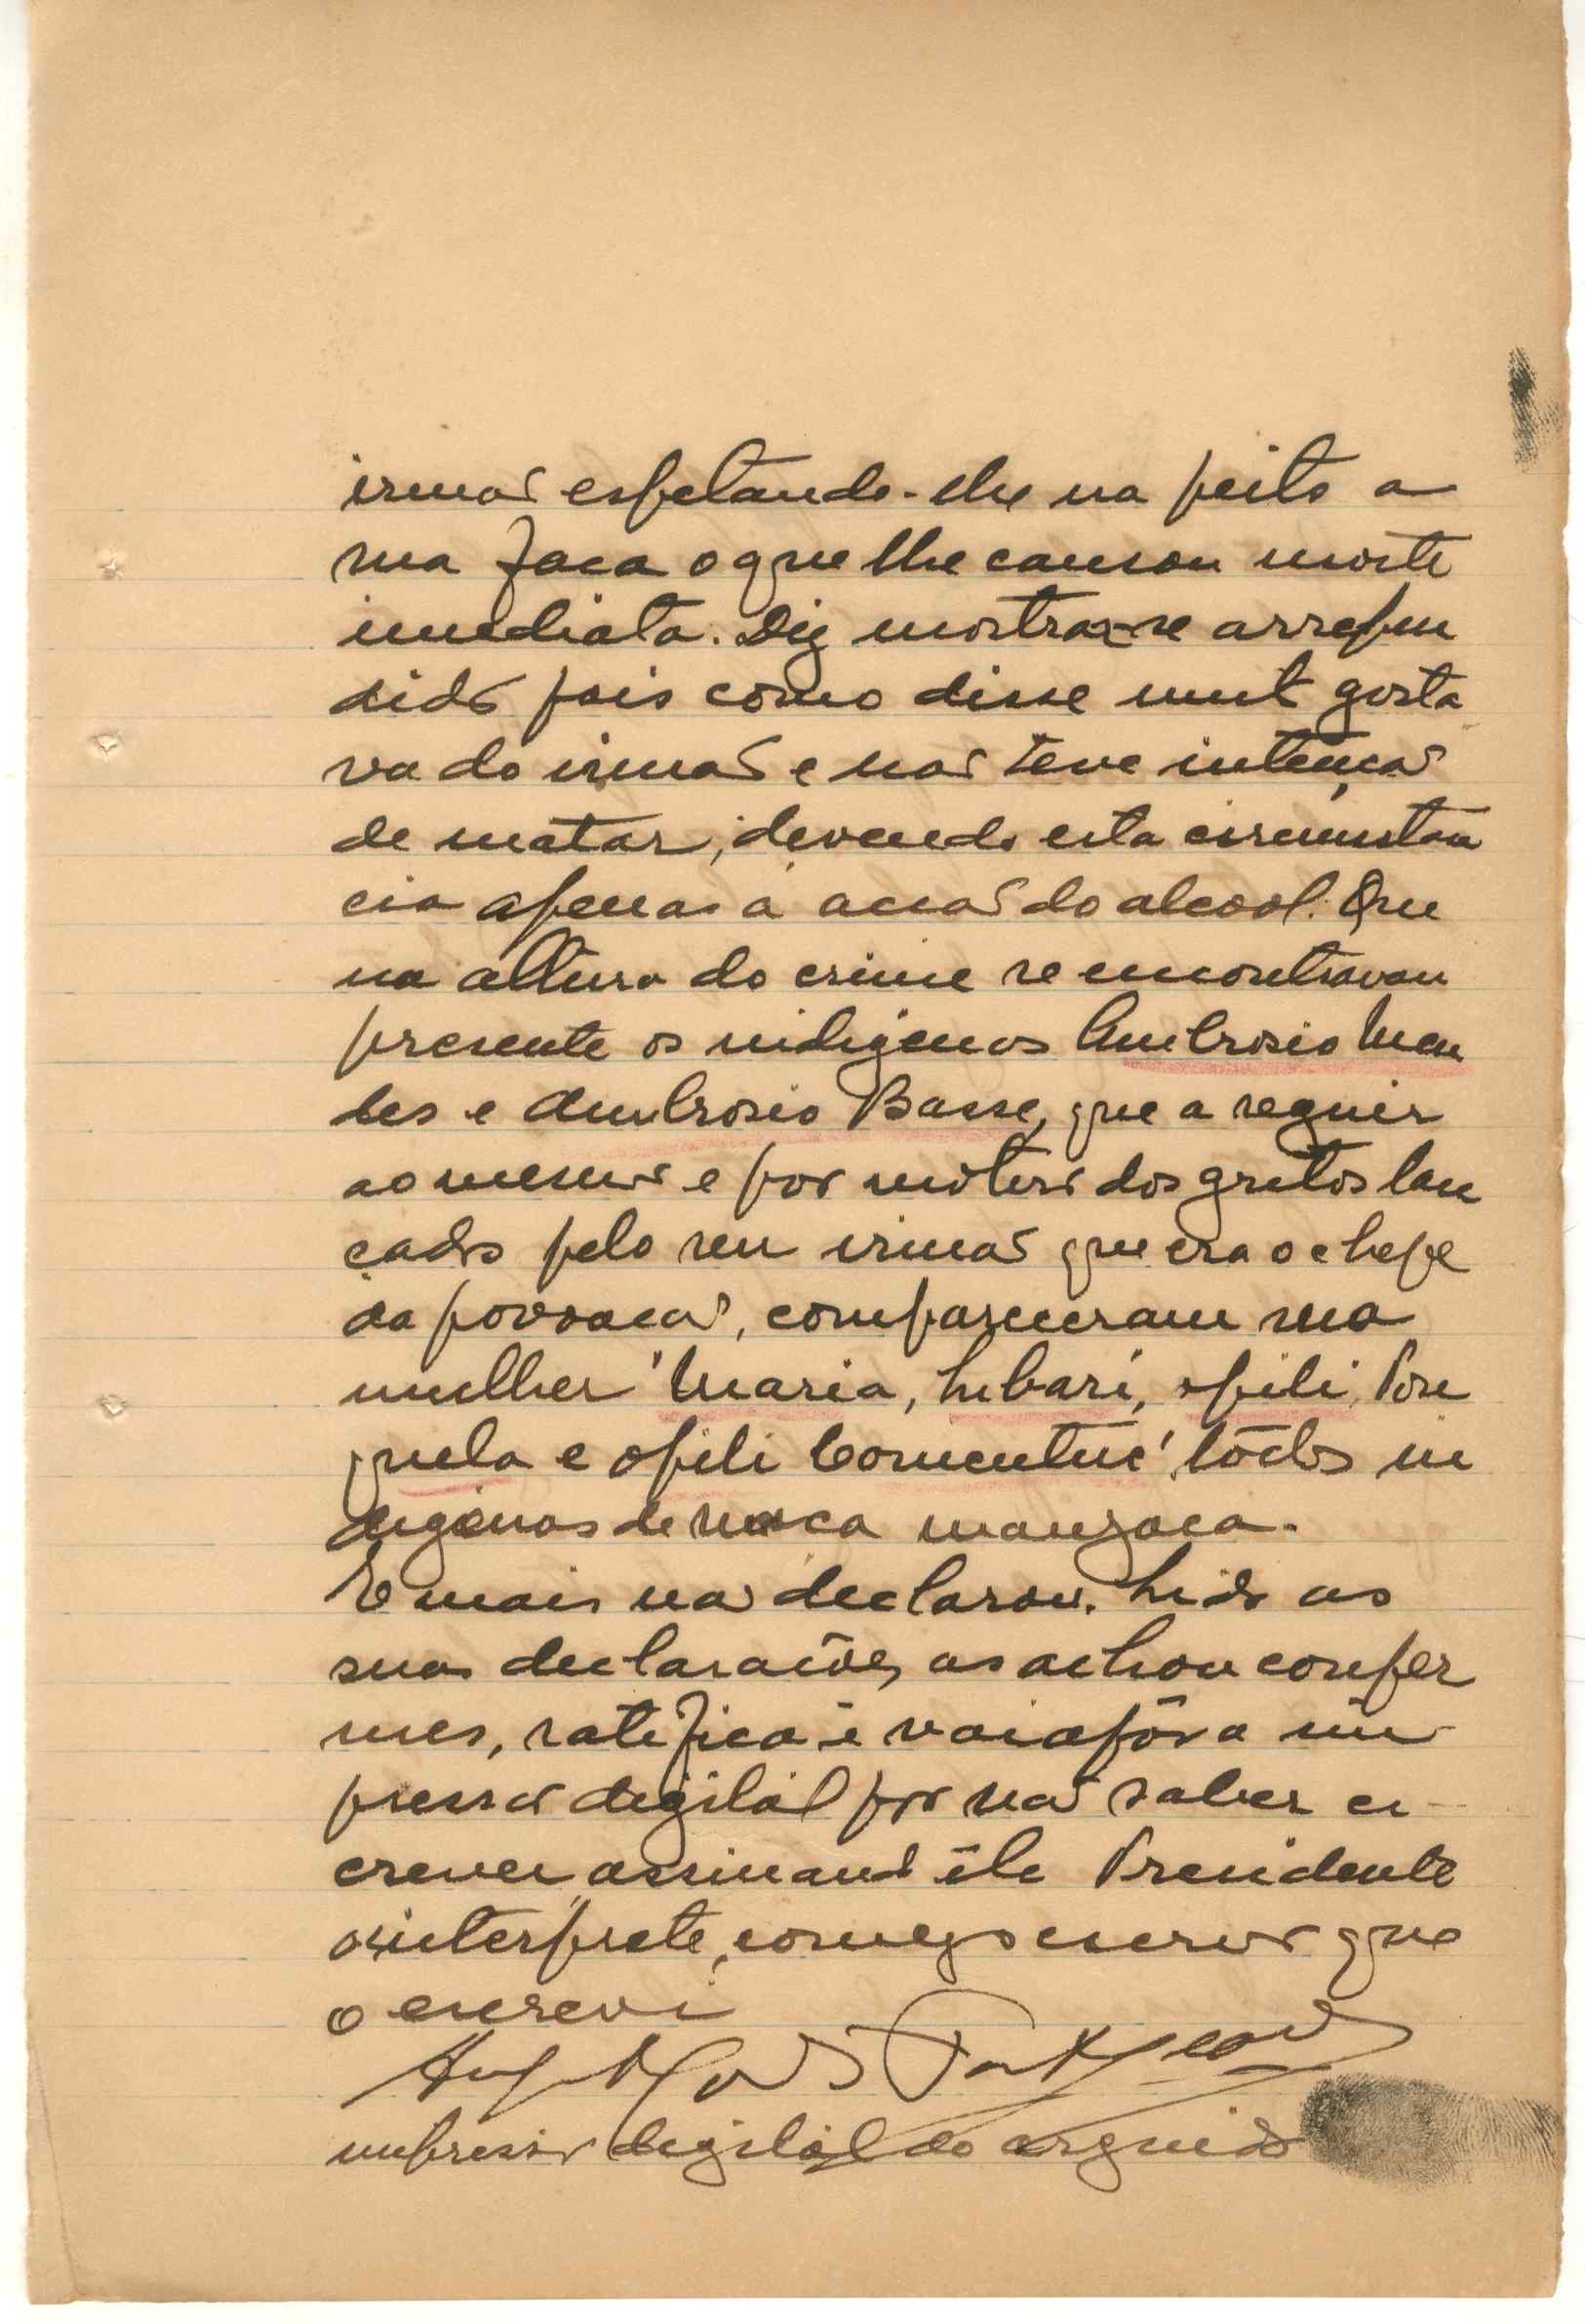 irmão espetando-lhe na peito a
sua faca o que lhe causou morte
imediata. Diz mostrar-se arrepen
dido pois como disse muito gosta
va do irmão e não teve intenção
de matar, devendo esta circunstan
cia apenas á acção do alcool. Que
na altura do crime se encontravam
presente os indigenas Ambrosio Men
des e Ambrosio Basse, que a seguir
ao mesmo e por motivo dos gritos lan
çados pelo seu irmão que era o chefe
da povoação, compareceram sua
mulher Maria, Lubari, Upili Pon
quela e Upili Comentué, todos in
digenas de raça manjaca.
E mais não declarou. Lido as
suas declarações as achou confor
mes, ratifica e vai apôr a im
pressão digital por não saber es
crever, assinando êle Presidente
o interprete, comigo escrivão que
o escrevi
impressão digital do arguido